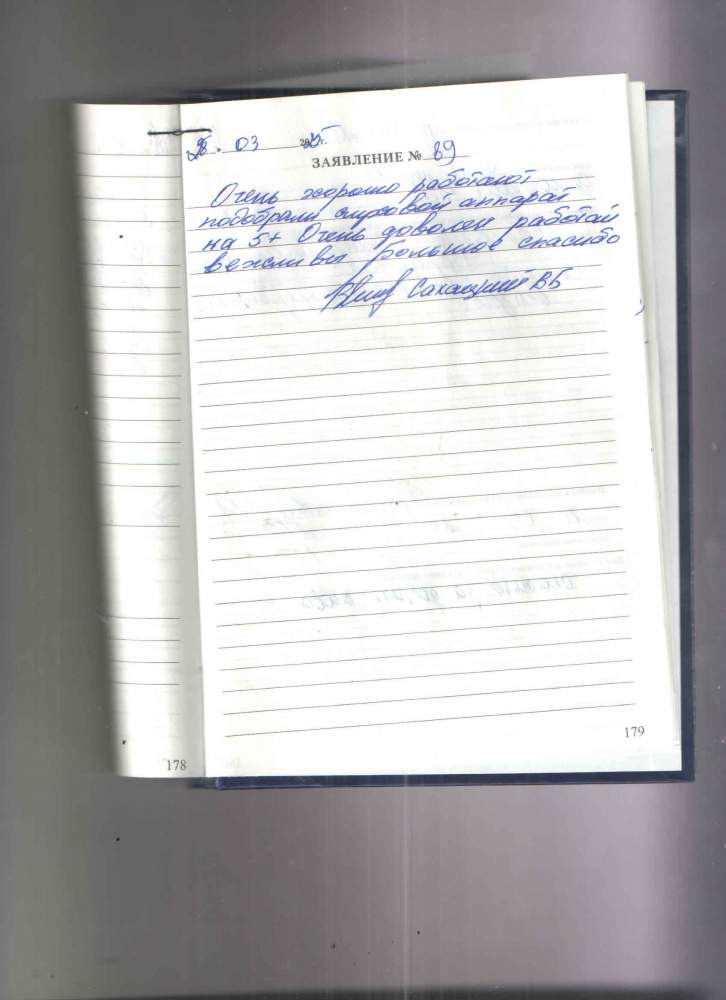 28. 03 2025г.
ЗАЯВЛЕНИЕ № 89
Очень хорошо работают
подобрали слуховой аппарат
на 5+ Очень доволен работай
вежливы Большое спасибо
ВБ
179
178